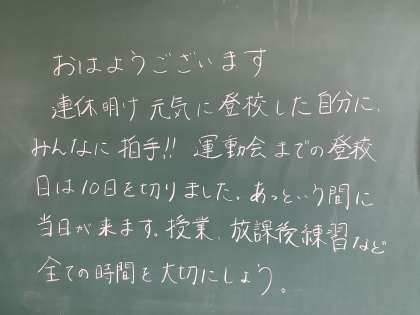 おはようございます
連休明け元気に登校した自分に、
みんなに拍手!! 運動会までの登校
日は10日を切りました。あっという間に
当日が来ます。授業、放課後練習など
全ての時間を大切にしよう。